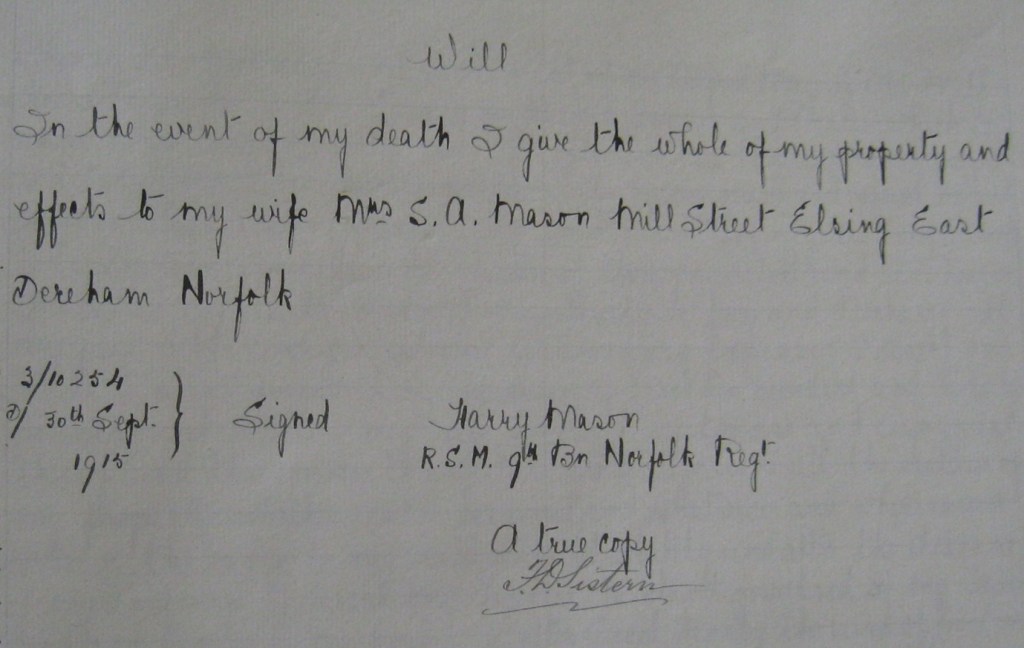 Will
In the event of my death I give the whole of my property and
effects to my wife Mrs S. A. Mason Mill Street Elsing East
Dereham Norfolk
3/10254
d/ 30th Sept. } Signed Harry Mason
1915 R.S.M. 9th Bn Norfolk Regt.
A true copy